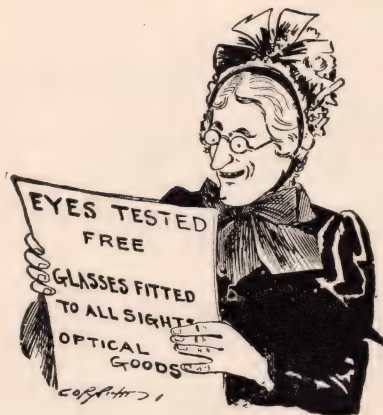 EYES TESTED
FREE
GLASSES FITTED
TO ALL SIGHTS
OPTICAL
GOODS